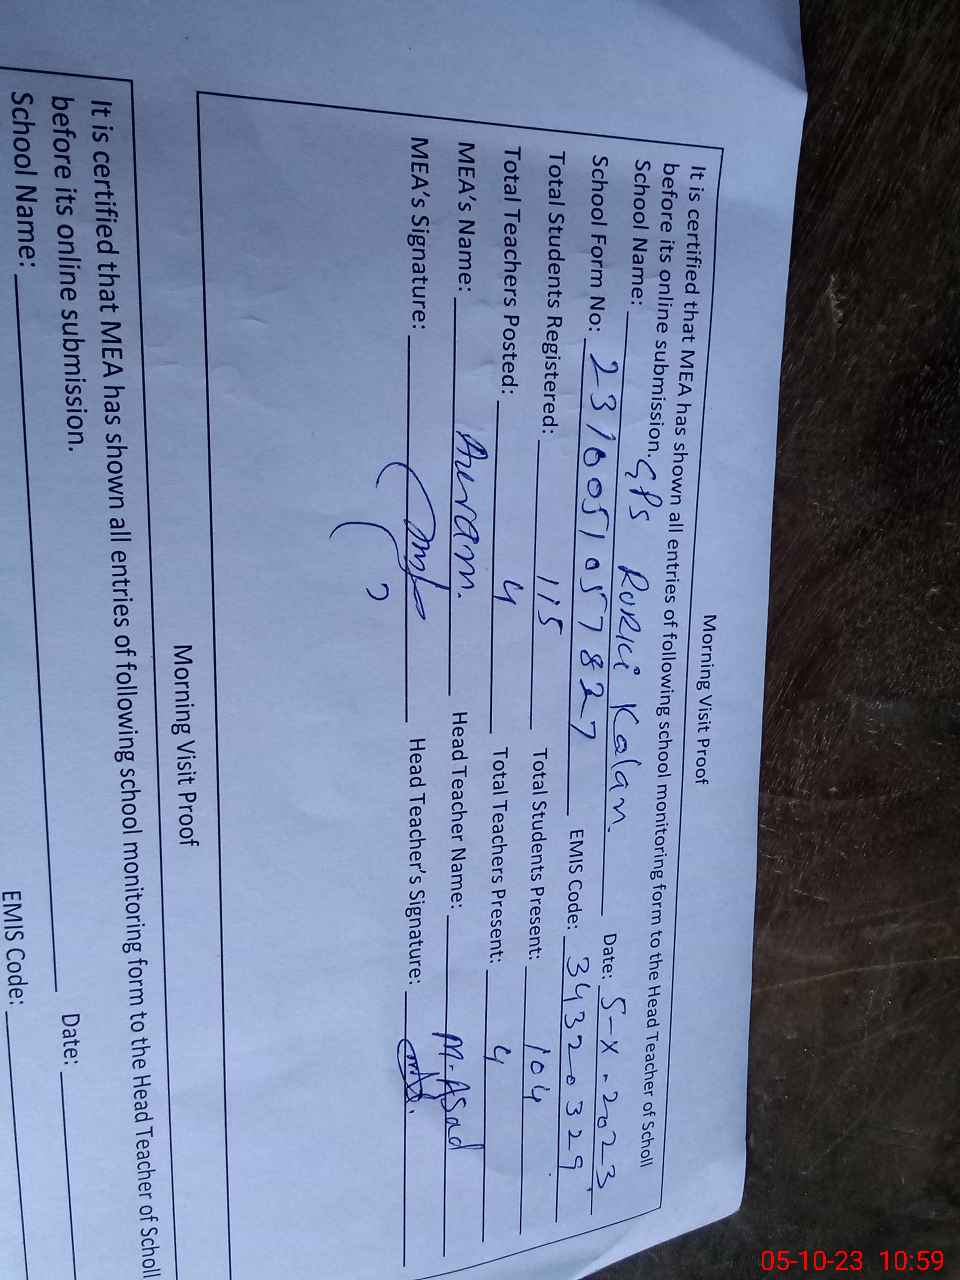 Morning Visit Proof
It is certified that MEA has shown all entries of following school monitoring form to the Head Teacher of Scholl
before its online submission.
School Name: GPS RURKI Kalan. Date: 5-X-2023.
School Form No: 2310051057827 EMIS Code: 34320329
Total Students Registered: 115 Total Students Present: 104
Total Teachers Posted: 4 Total Teachers Present: 4
MEA's Name: Head Teacher Name: M.ASad
MEA's Signature: Head Teacher's Signature:
Morning Visit Proof
It is certified that MEA has shown all entries of following school monitoring form to the Head Teacher of Scholl
before its online submission.
Date:
School Name: EMIS Code:
05-10-23 10:59